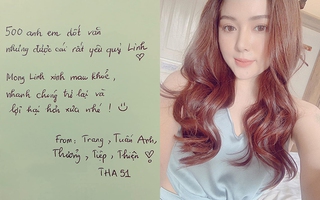 500 anh em dốt văn
nhưng được cái rất yêu quý Linh ♡
Mong Linh xinh mau khoẻ,
nhanh chóng trở lại và
lợi hại hơn xưa nhé ! ☺
From: Trang, Tuấn Anh,
Thưởng, Tiệp, Thiện ♡
THA 51